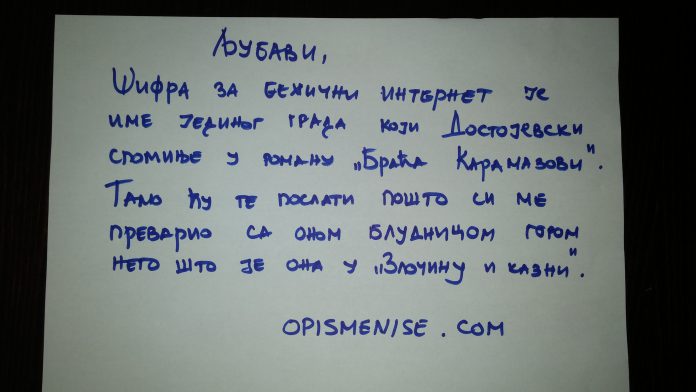 Љубави,
Шифра за бежични интернет је
име јединог града који Достојевски
спомиње у роману „Браћа Карамазови".
Тамо ћу те послати пошто си ме
преварио са оном блудницом гором
него што је она у „Злочину и казни".
OPISMENISE.COM